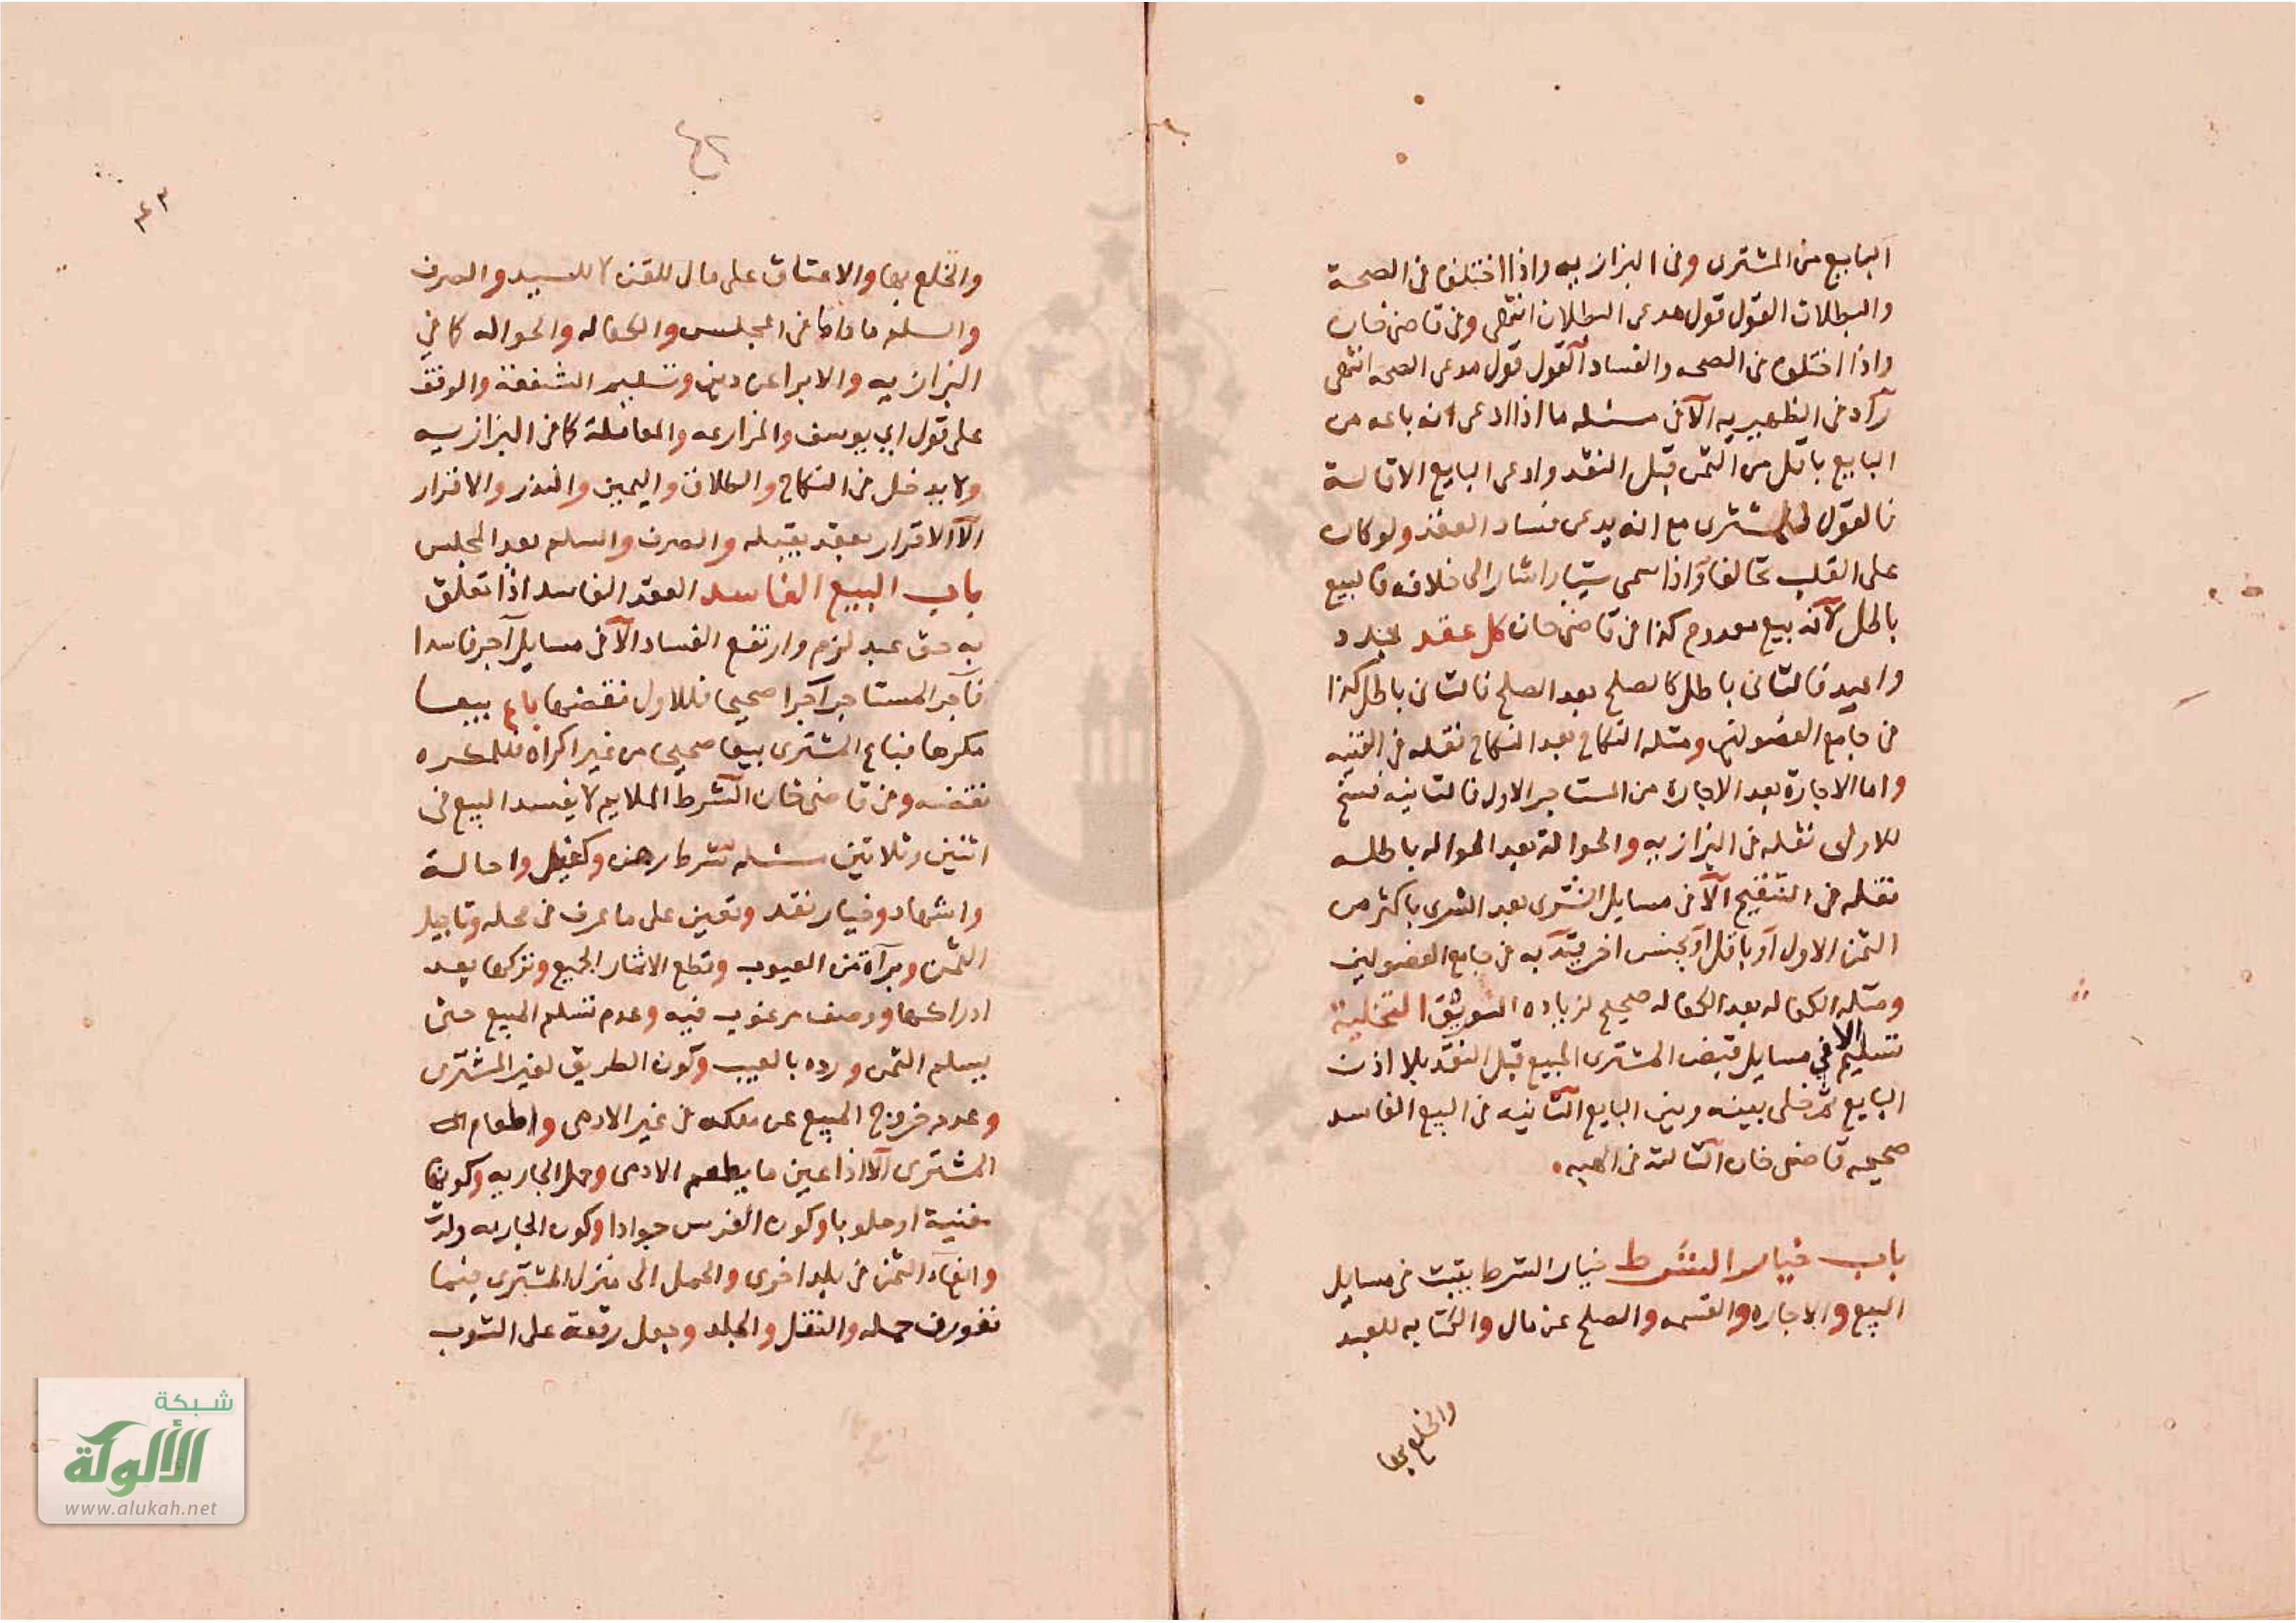 البايع من المشترى وفى البزازيه واذا اختلفا فى الصحة
والبطلان القول قول مدعى البطلان انتهى وفى قاضى خان
واذا اختلفا فى الصحه والفساد القول قول مدعى الصحه انتهى
زاد فى الظهيريه الا فى مسئله ما اذا ادعى انه باعه من
البايع باقل من الثمن قبل النقد وادعى البايع الاقالة
فالقول للمشترى مع انه يدعى فساد العقد ولو كان
على القلب تحالفا واذا سمى شيئا واشار الى خلافه فالبيع
باطل لانه بيع معدوم كذا فى قاضى خان كل عقد جدد
واعيد فالثانى باطل كالصلح بعد الصلح فالثانى باطل كذا
فى جامع الفصولين ومثله النكاح بعد النكاح نقله فى القنيه
واما الاجارة بعد الاجاره من المستاجر الاول فالثانيه فسخ
للاولى نقله فى البزازيه والحوالة بعد الحواله باطله
نقله فى التنقيح الا فى مسايل الشرى بعد الشرى باكثر من
الثمن الاول او باقل او بجنس اخر قيد به فى جامع الفصولين
ومثله الكفاله بعد الكفاله صحيح لزياده التوثيق التخلية
تسليم الا فى مسايل قبض المشترى المبيع قبل النقد بلا اذن
البايع ثم خلى بينه وبين البايع الثانيه فى البيع الفاسد
صحيحه قاضى خان الثالثه فى الهبه
باب خيار الشرط خيار الشرط يثبت فى مسايل
البيع والاجاره والقسمه والصلح عن مال والكتابه للعبد
والخلع بها
٤٢
٤٣
والخلع بها والاعتاق على مال للقن لا للسيد والصرف
والسلم ما داما فى المجلس والكفاله والحواله كما فى
البزازيه والابرا عن دين وتسليم الشفعة والوقف
على قول ابى يوسف والمزارعه والمعاملة كما فى البزازيه
ولا يدخل فى النكاح والطلاق واليمين والنذر والاقرار
الا الاقرار بعقد يقبله والصرف والسلم بعد المجلس
باب البيع الفاسد العقد الفاسد اذا تعلق
به حق عبد لزم وارتفع الفساد الا فى مسايل آجر فاسدا
فآجر المستاجر آجرا صحيحا فللاول نقضها باع بيعا
مكرها فباع المشترى بيعا صحيحا من غير اكراه فللمكره
نقضه وفى قاضى خان الشرط الملايم لا يفسد البيع فى
اثنين وثلاثين مسئله شرط رهن وكفيل واحالة
واشهاد وخيار نقد وتعين على ما عرف فى محله وتاجيل
الثمن وبرآة من العيوب وقطع الاثمار المبيع وتركها بعد
ادراكها ووصف مرغوب فيه وعدم تسلم المبيع حتى
يسلم الثمن ورده بالعيب وكون الطريق لغير المشترى
وعدم خروج المبيع عن ملكه فى غير الادمى واطعام
المشترى الا اذا عين ما يطعم الادمى وحمل الجاريه وكونها
مغنية او حلوبا وكون الفرس جوادا وكون الجاريه ولدت
وايفاء الثمن فى بلد اخرى والحمل الى منزل المشترى فيما
تعورف حمله والنعل والجلد وجعل رقعة على الثوب
شبكة
الألوكة
www.alukah.net